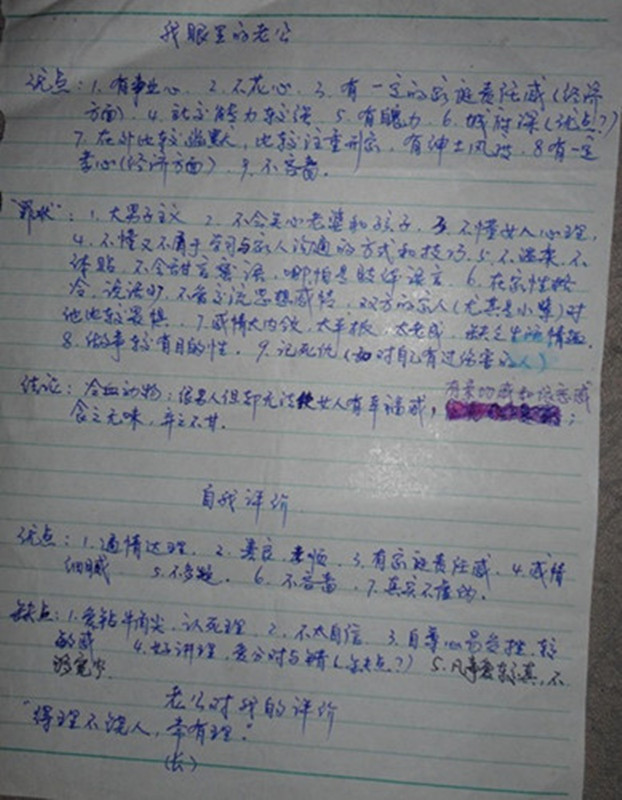 我眼里的老公
优点：1.有事业心 2.不花心 3.有一定的家庭责任感（经济
方面）.4.社交能力较强 5.有魄力 6.城府深（优点？）
7.在外比较幽默，比较注重形象，有绅士风度.8.有一定
孝心（经济方面）.9.不吝啬.
"罪状"：1.大男子主义 2.不会关心老婆和孩子.3.不懂女人心理.
4.不懂又不屑于学习与家人沟通的方式和技巧.5.不温柔.不
体贴.不会甜言蜜语，哪怕是 6.在家性格
冷，说话少，不爱交流思想感情.双方的家人（尤其是小辈）对
他比较畏惧.7.感情太内敛，太平板，太老成，缺乏生活情趣.
8.做事较有目的性.9.记死仇（如对自己有过伤害的人）
结论：冷血动物：像男人但却无法使女人有幸福感，
食之无味，弃之不甘.
自我评价
优点：1.通情达理. 2.善良.孝顺 3.有家庭责任感.4.感情
细腻 5.不多疑. 6.不吝啬.7.真实不虚伪.
缺点：1.爱钻牛角尖.认死理.2.不太自信.3.自尊心易受挫.较
敏感 4.好讲理，爱分对与错（ 缺点？）5.凡事爱较真，不
够宽
老公对我的评价
"得理不饶人，常有理."
（长）